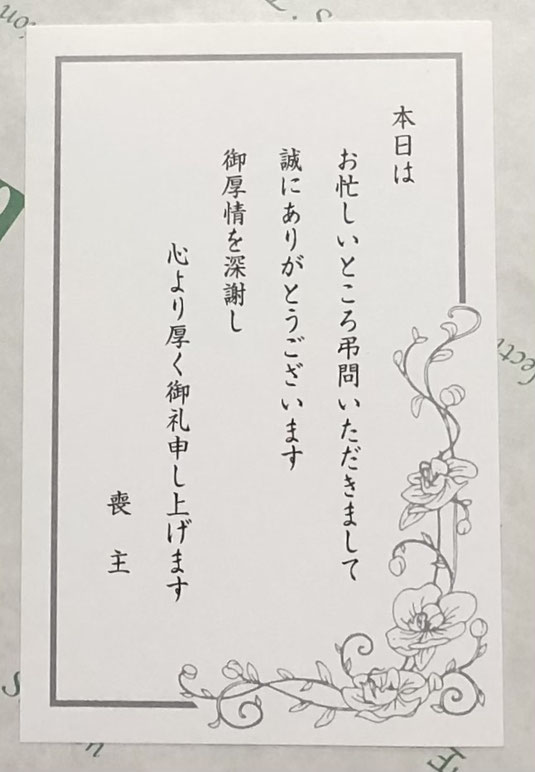 本日は
お忙しいところ弔問いただきまして
誠にありがとうございます
御厚情を深謝し
心より厚く御礼申し上げます
喪主